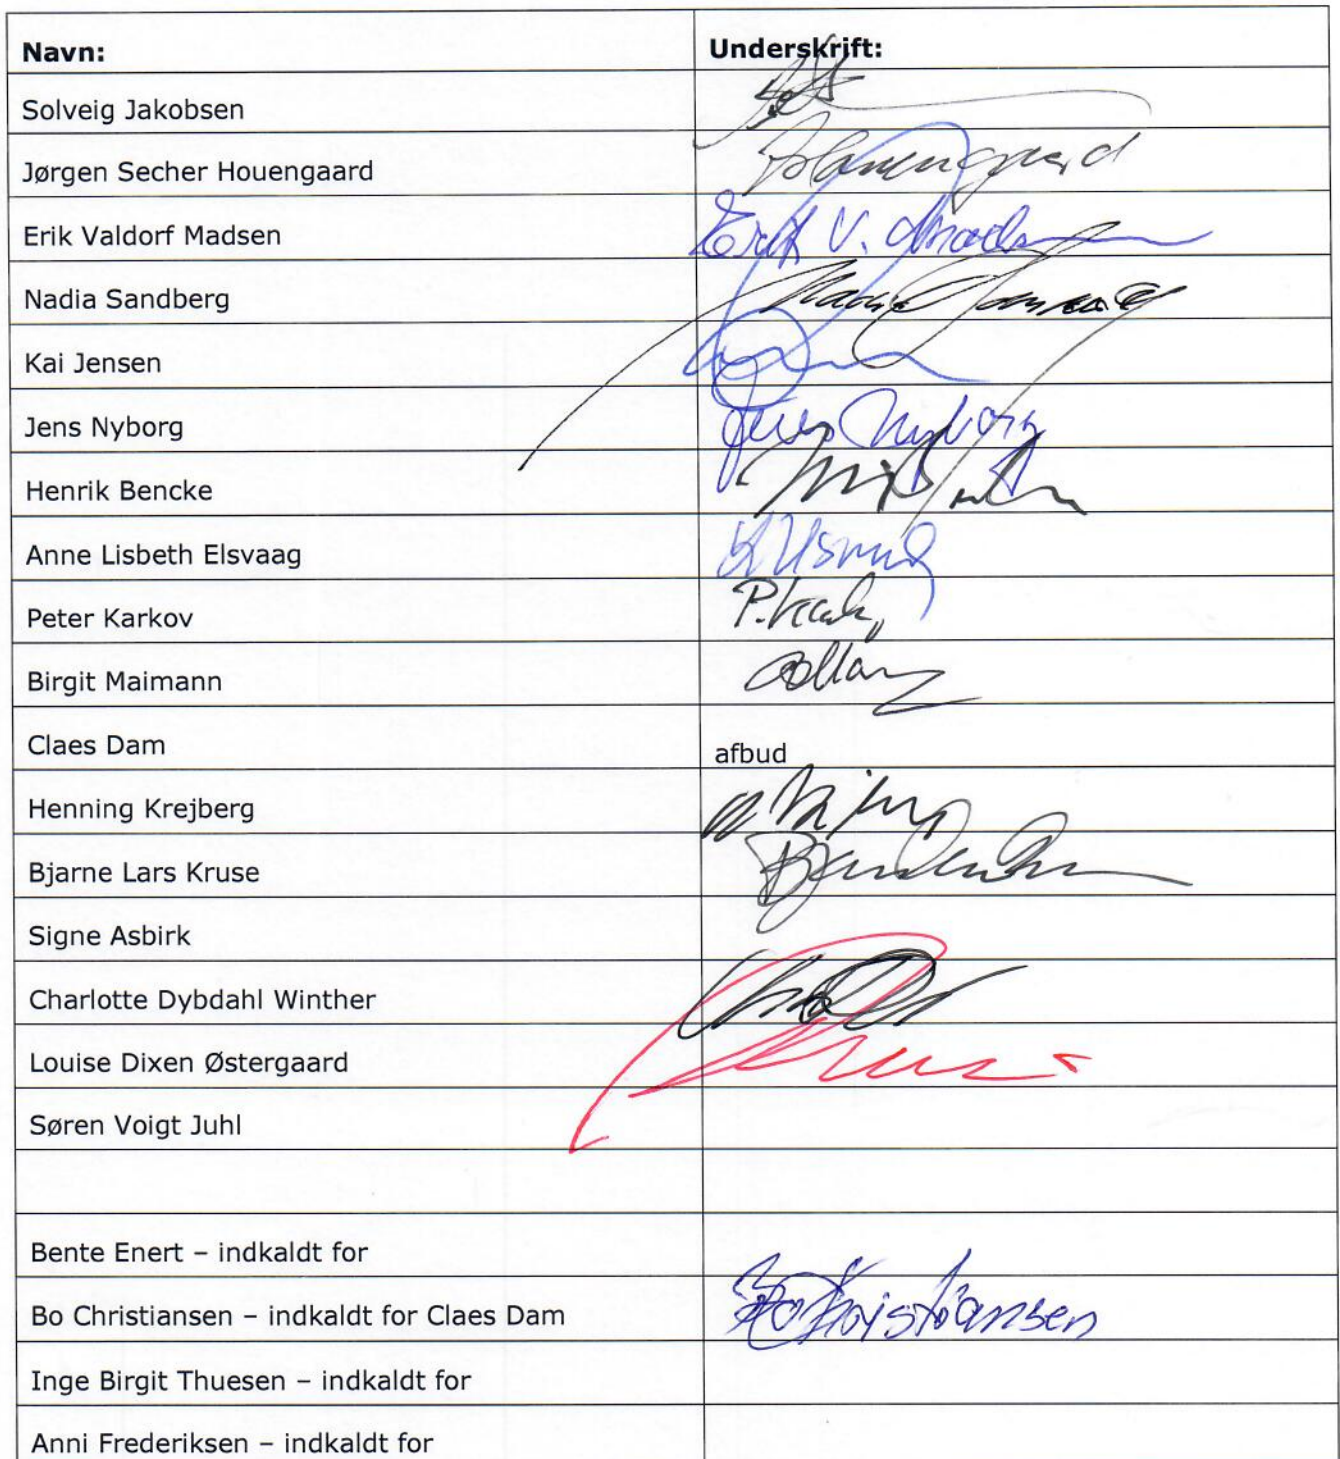 Navn: Underskrift:
Solveig Jakobsen
Jørgen Secher Houengaard Houengaard
Erik Valdorf Madsen Erik V. Madsen
Nadia Sandberg
Kai Jensen
Jens Nyborg Jens Nyborg
Henrik Bencke
Anne Lisbeth Elsvaag
Peter Karkov
Birgit Maimann
Claes Dam afbud
Henning Krejberg
Bjarne Lars Kruse
Signe Asbirk
Charlotte Dybdahl Winther
Louise Dixen Østergaard
Søren Voigt Juhl
Bente Enert – indkaldt for
Bo Christiansen – indkaldt for Claes Dam Bo Christiansen
Inge Birgit Thuesen – indkaldt for
Anni Frederiksen – indkaldt for